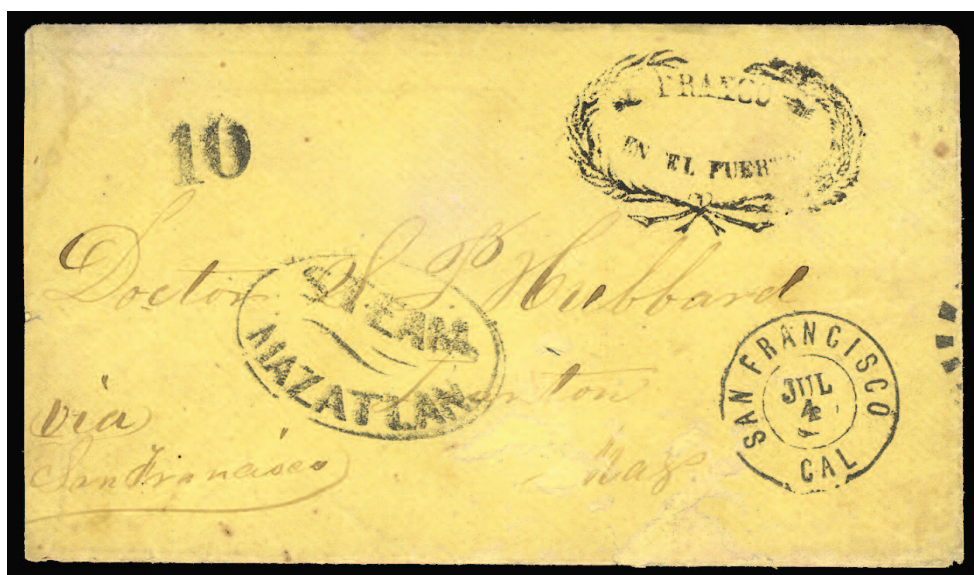 10
FRANCO
EN EL PUERT
Doctor S P Hubbard
STEAM
MAZATLAN
SAN FRANCISCO
JUL
4
CAL
via
San Francisco